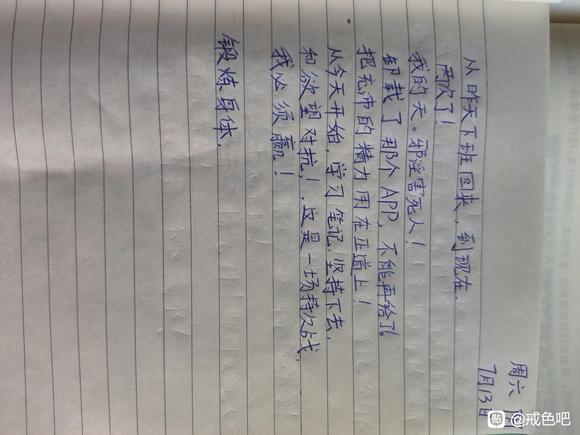 周六 阴
7月13日
从昨天下班回来,到现在,
两次了!
我的天。邪淫害死人!
卸载了那个APP,不能再给了。
把充沛的精力用在正道上!
从今天开始,学习笔记,坚持下去,
和欲望对抗!,这是一场持久战,
我必须赢!
锻炼身体,
贴 @戒色吧